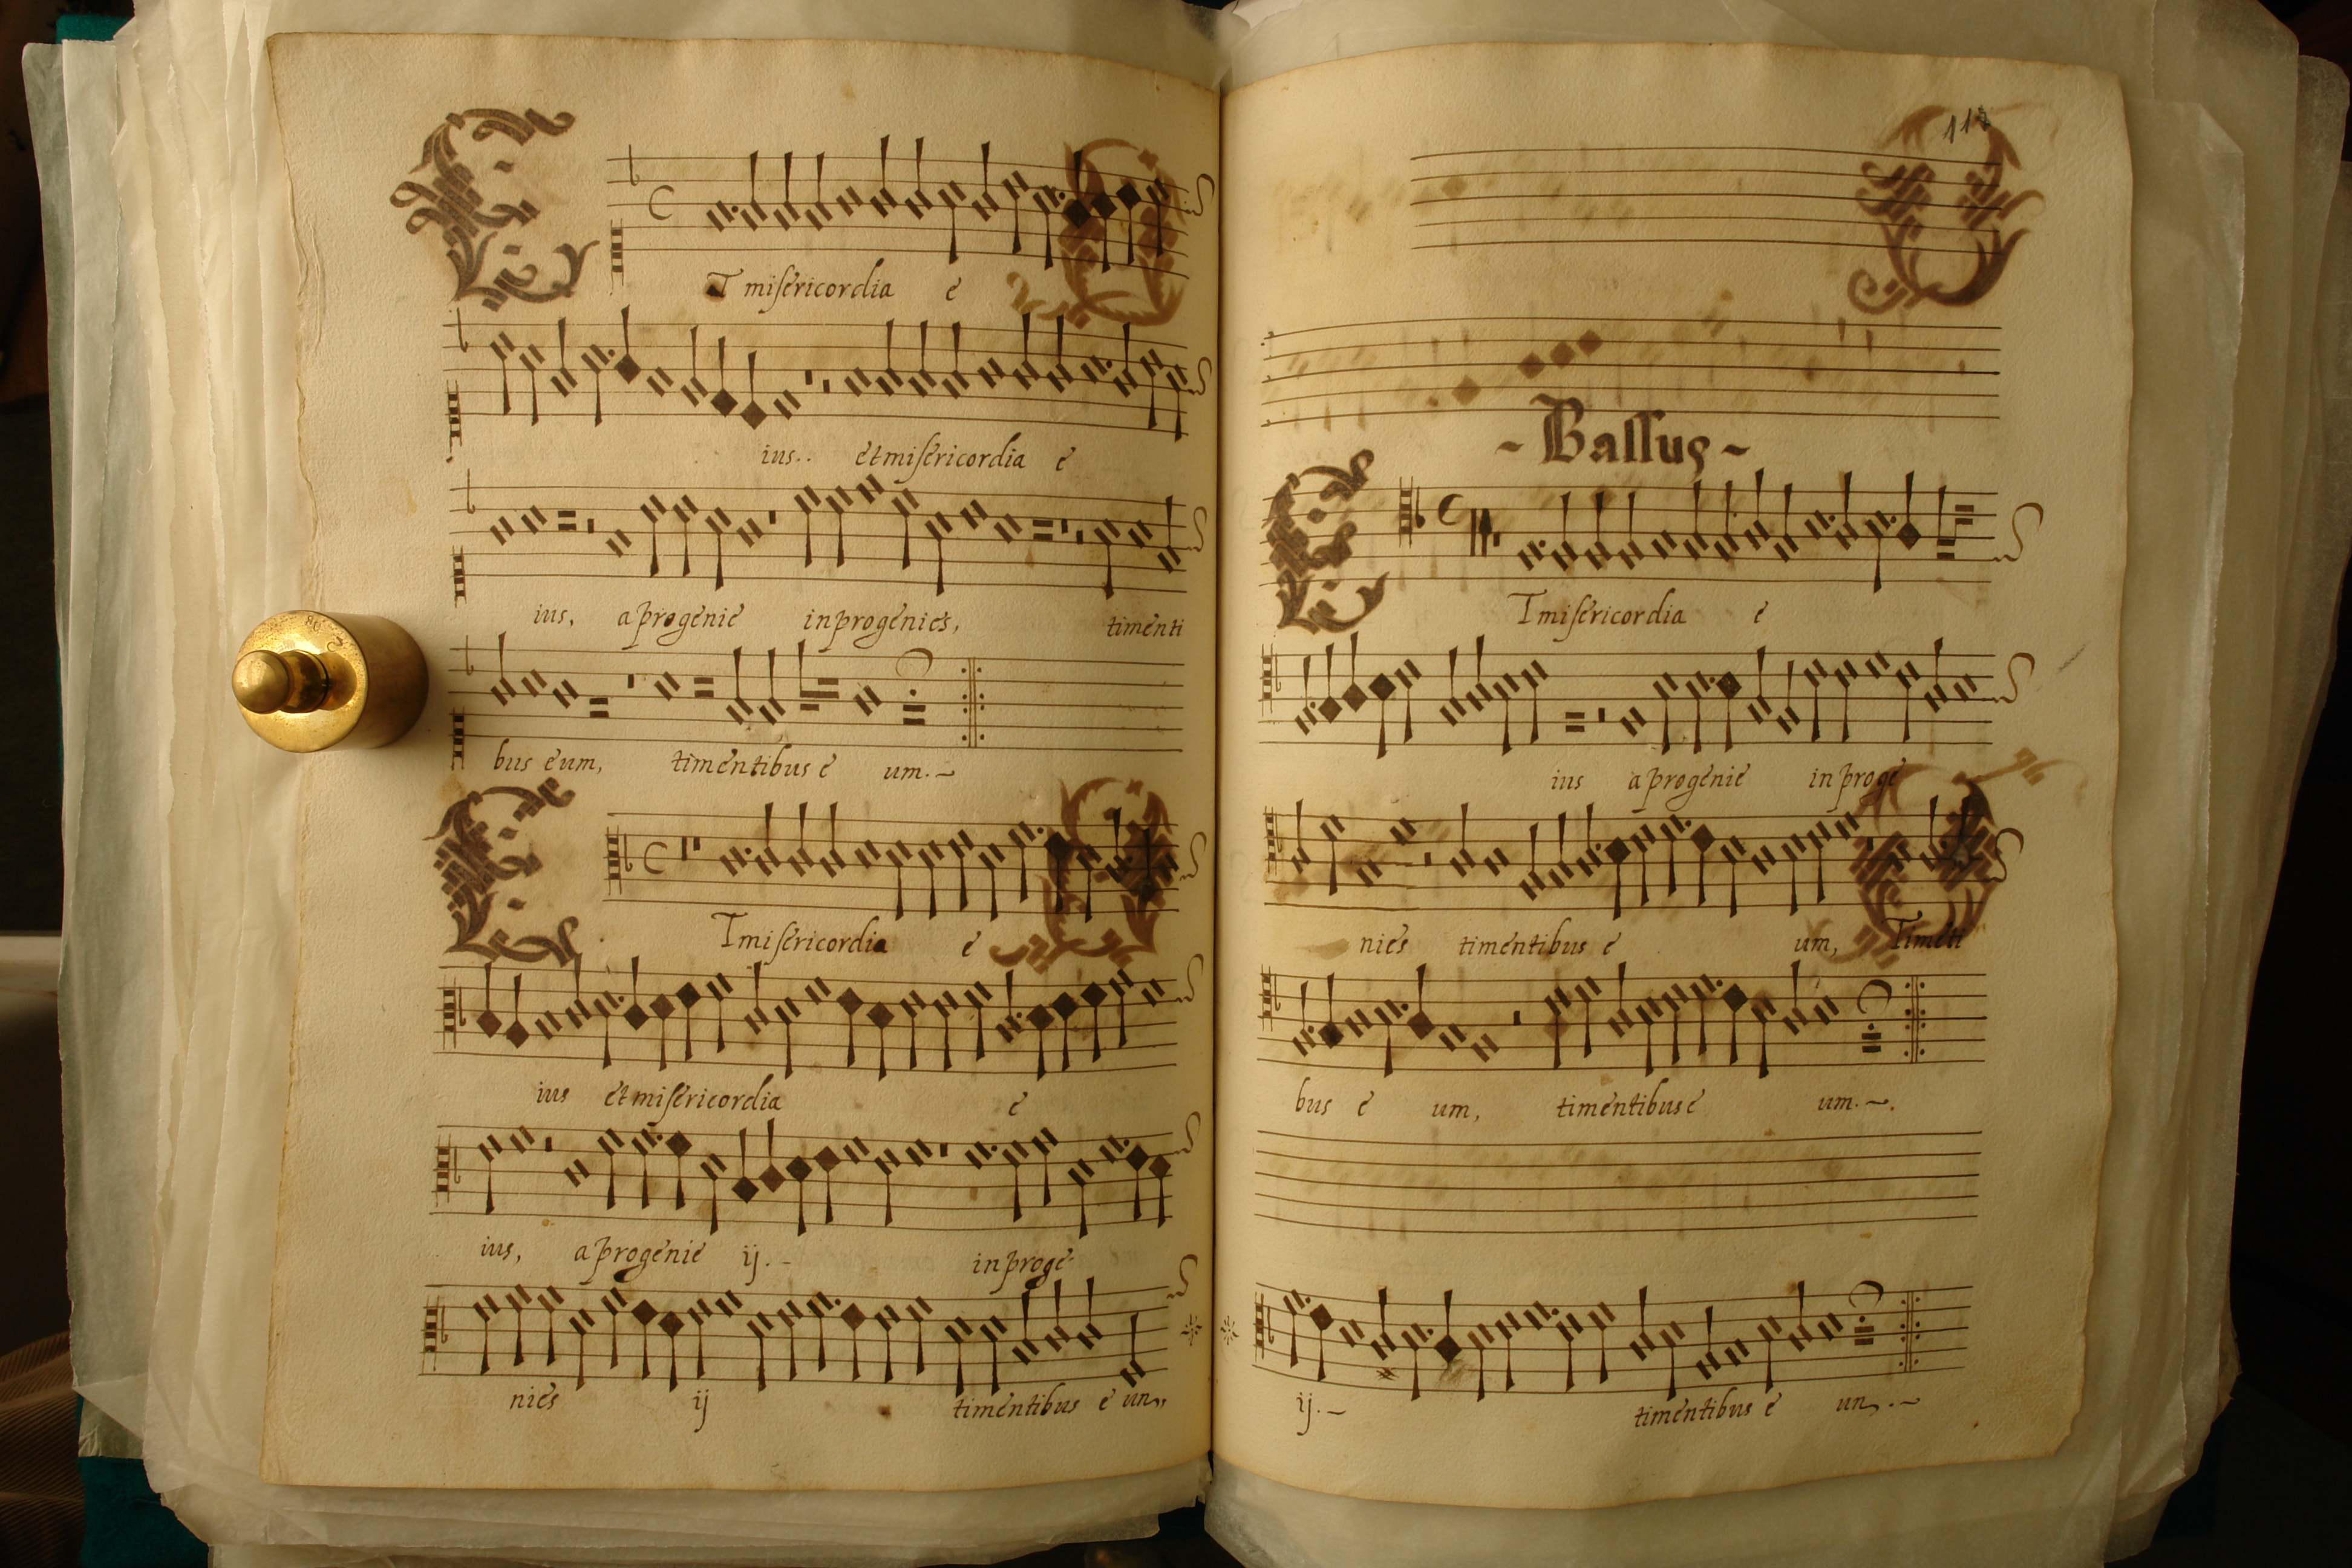 E
T misericordia e
ius.. et misericordia e
ius, a progenie in progenies, timenti
bus eum, timentibus e um.~
E
T misericordia e
ius et misericordia e
ius, a progenie ij.- in proge-
nies ij timentibus e um,
118
-Bassus-
E
T misericordia e
ius a progenie in proge
nies timentibus e um, Timēti
bus e um, timentibus e um.~.
ij.~ timentibus e um.~